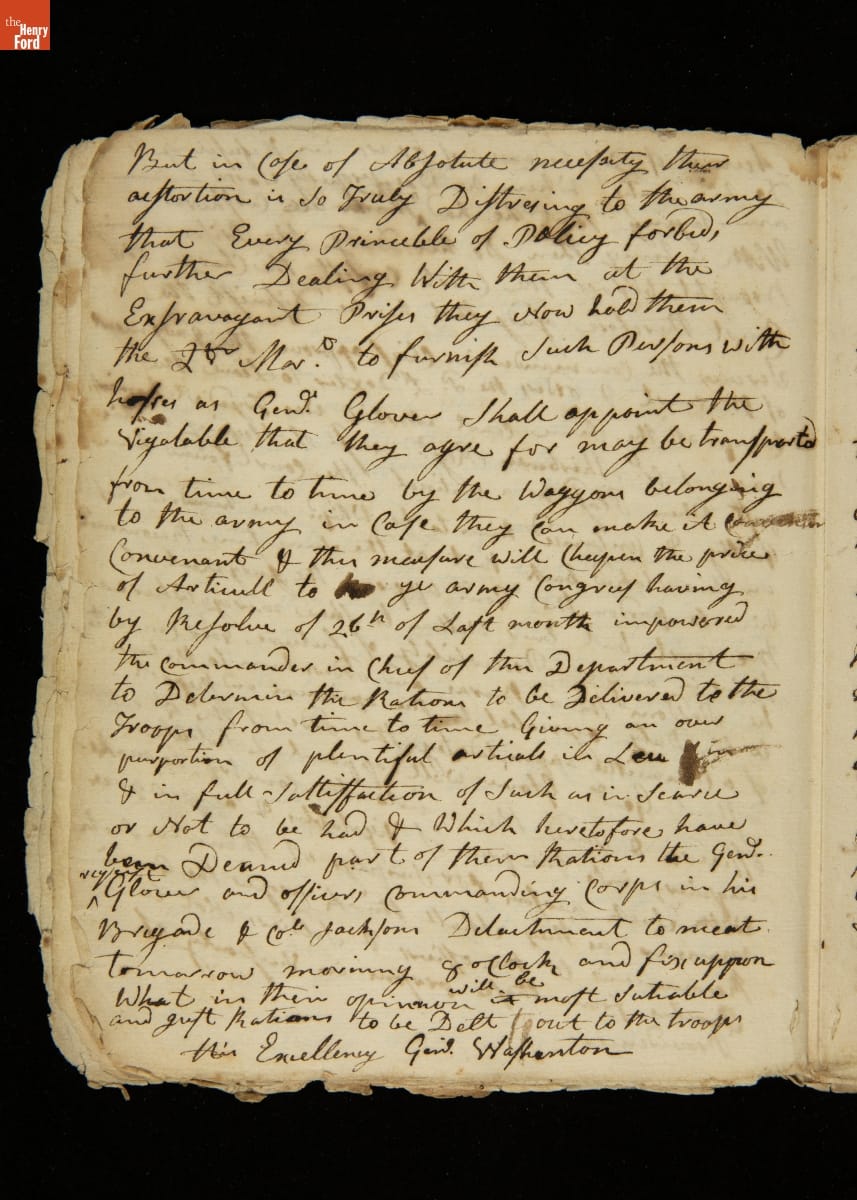 the
Henry
Ford
But in Case of Absolute necessity their
aestortion is So Truly Distresing to the army
that Every Princeble of Policy forbids
further Dealing With them at the
Exstravagant Prises they Now hold them
the Qr Mar. to furnish Such Persons with
horses as Genl. Glover Shall appoint the
Vigalable that they agre for may be transported
from time to time by the Waggons belonging
to the army in Case they can make it
Convenant & this measure will Cheepen the price
of Articull to ye army Congress having
by Resolve of 26th of Last month impowered
the Commander in Chief of this Department
to Determin the Rations to be Delivered to the
Troops from time to time Giving an over
purportion of plentiful articals in Leu
& in full Sattiffaction of Such as is Scarce
or Not to be had & Which heretofore have
been Demed part of them Rations the Genl.
request
^ Glover and officers Commanding Corps in his
Brigade & Col. Jacksons Detachment to meat
tomorrow morning 8 oClock and fix uppon
What in their opinnon will be most Sutiable
and just Rations to be Delt out to the troops
His Excellency Genl. Washenton